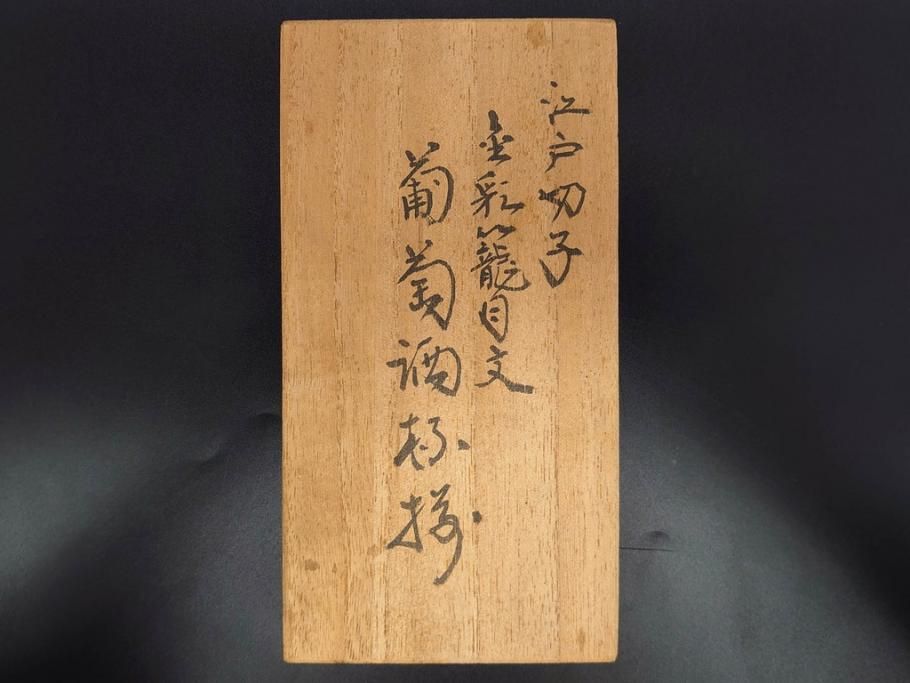 江戸切子
金彩籠目文
葡萄酒杯揃